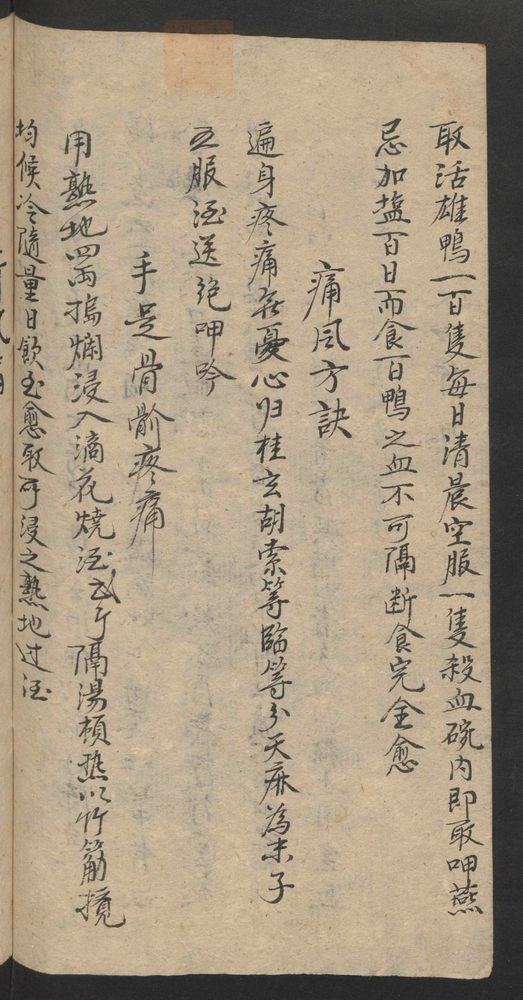 取活雄鴨一百隻每日清晨空服一隻殺血碗内即取呷燕
忌加盐百日而食百鴨之血不可隔断食完全愈
痛風方訣
遍身疼痛在憂心归桂玄胡索等臨等分天麻為末子
五服酒送绝呻吟
手足骨節疼痛
用熟地四両搗爛浸入滴花燒酒弍斤隔湯頓热以竹筋攪
均候冷隨量日飲至愈取所浸之熟地过酒